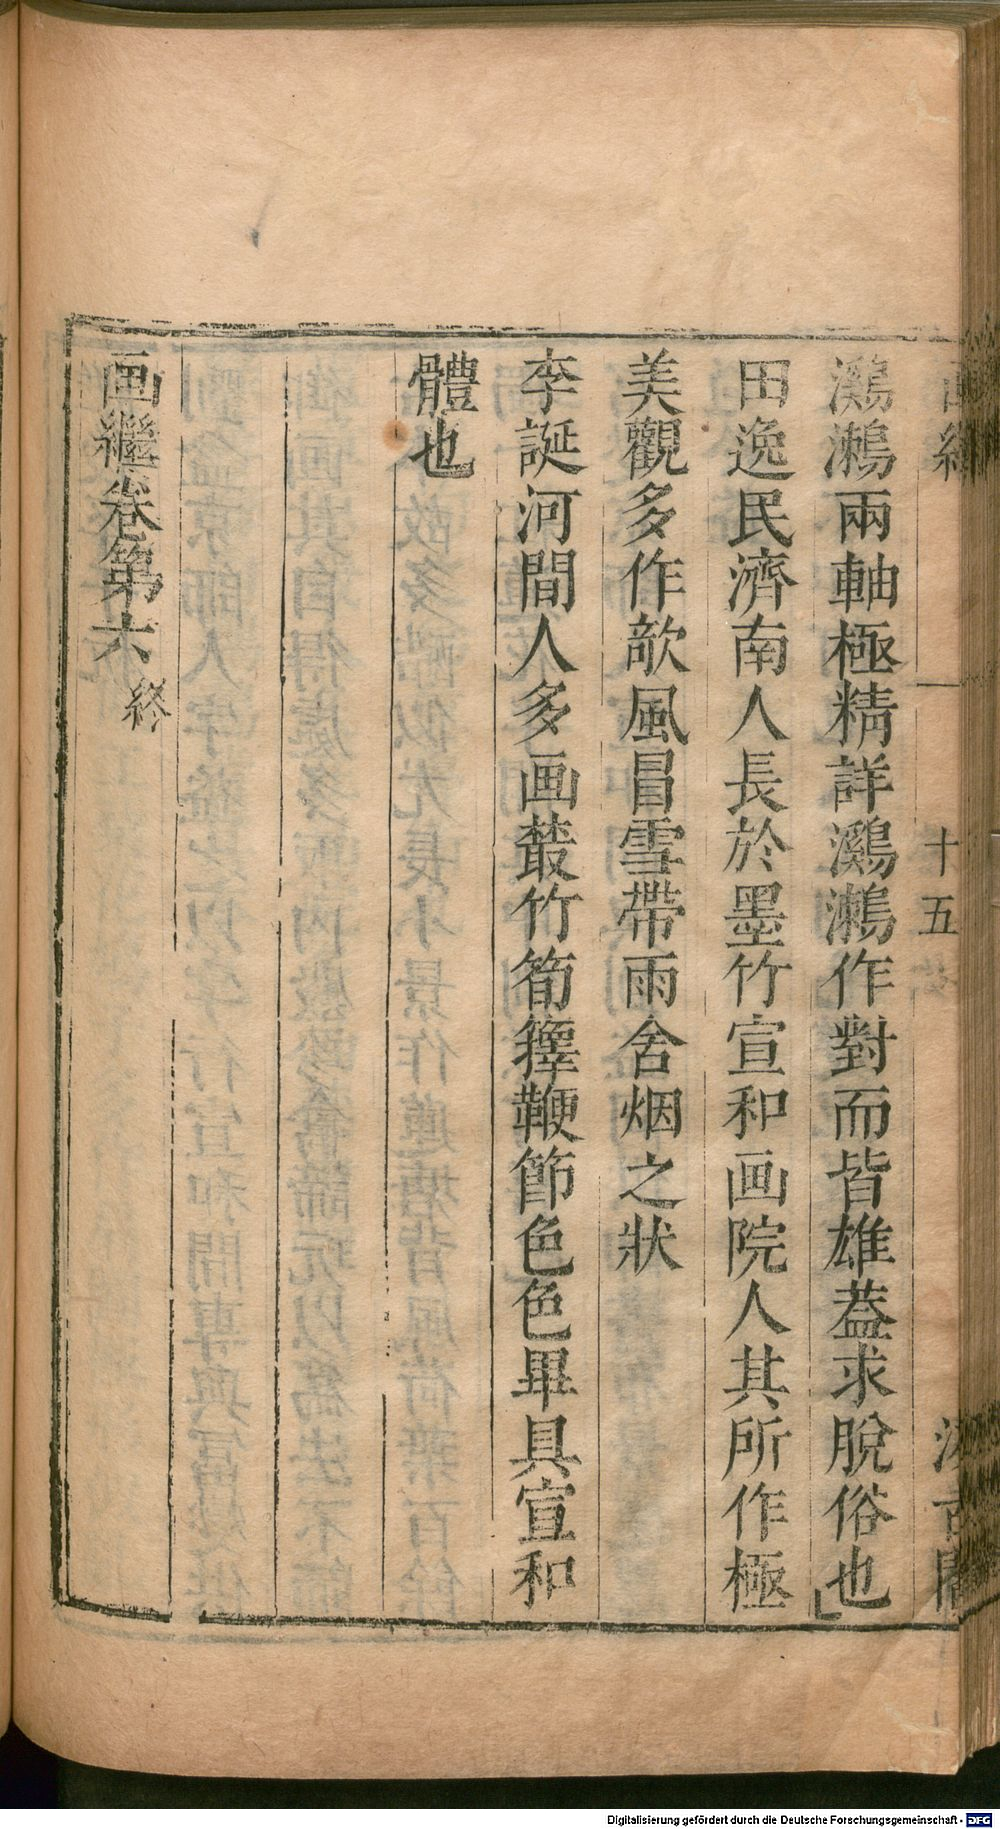 十五
鸂鶒兩軸極精詳鸂鶒作對而皆雄蓋求脫俗也
田逸民濟南人長於墨竹宣和画院人其所作極
美觀多作欹風冒雪帶雨含烟之狀
李誕河間人多画叢竹筍籜鞭節色色畢具宣和
體也
画繼卷第六 終
Digitalisierung gefördert durch die Deutsche Forschungsgemeinschaft - DFG